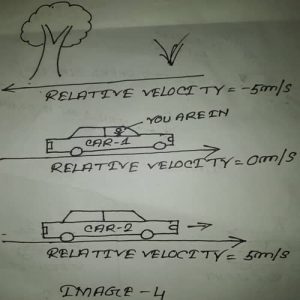 RELATIVE VELOCITY = -5m/s
YOU ARE IN
CAR-1
RELATIVE VELOCITY = 0m/s
CAR-2
RELATIVE VELOCITY = 5m/s
IMAGE-4